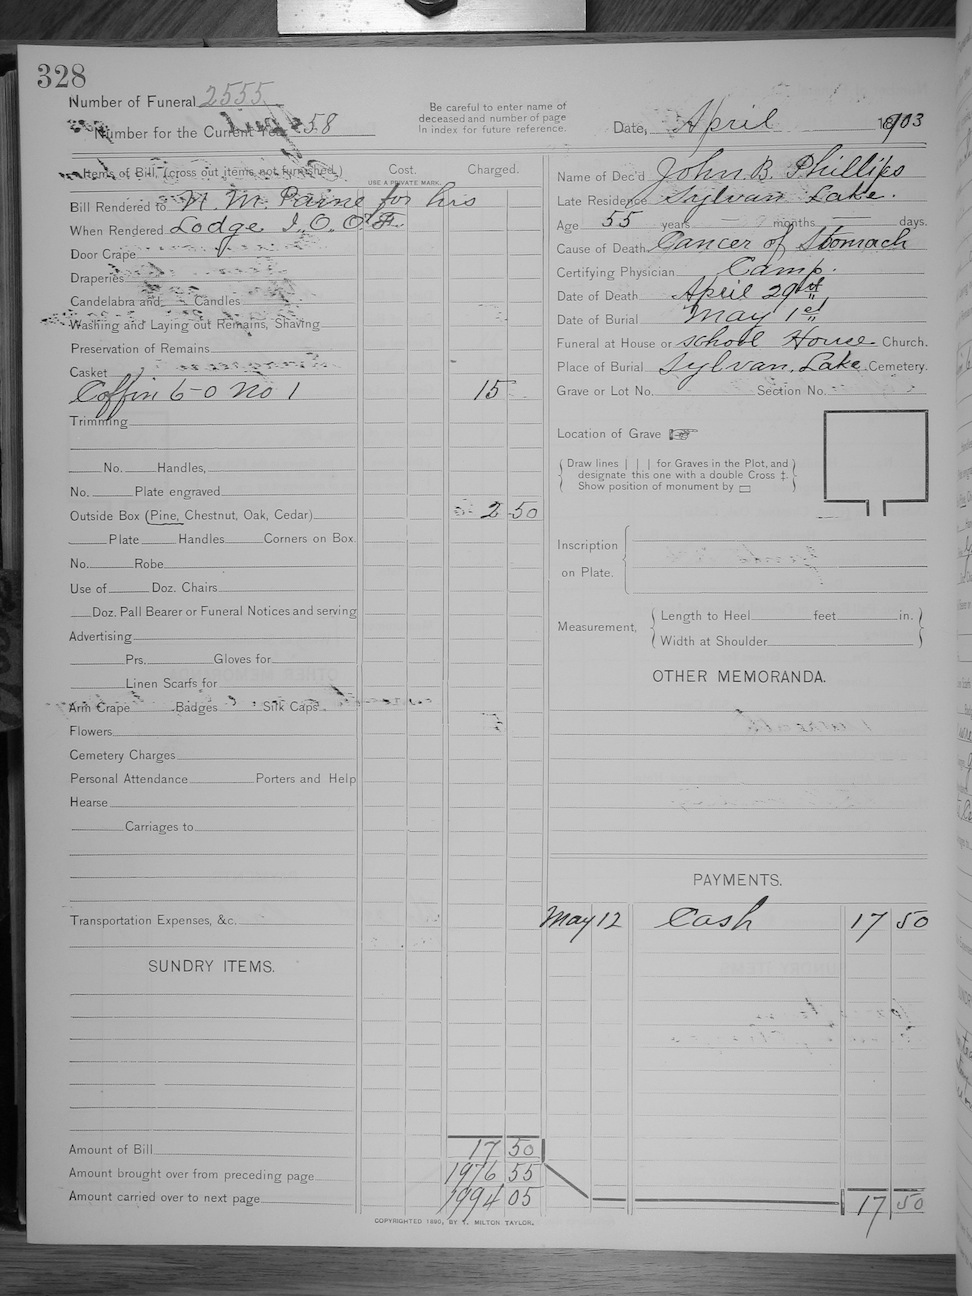 328
Number of Funeral 2555
Number for the Current 58
Be careful to enter name of
deceased and number of page
in index for future reference.
Date, April 1903
Items of Bill, (cross out items not furnished.)
Cost.
USE A PRIVATE MARK.
Charged.
Bill Rendered to N. M. Paine for his
When Rendered Lodge I.O.O.F.
Door Crape
Draperies
Candelabra and Candles
Washing and Laying out Remains, Shaving
Preservation of Remains
Casket
Coffin 6-0 No 1 15
Trimming
No. Handles,
No. Plate engraved
Outside Box (Pine, Chestnut, Oak, Cedar) 2 50
Plate Handles Corners on Box.
No. Robe
Use of Doz. Chairs
Doz. Pall Bearer or Funeral Notices and serving
Advertising
Prs. Gloves for
Linen Scarfs for
Arm Crape Badges Silk Caps
Flowers
Cemetery Charges
Personal Attendance Porters and Help
Hearse
Carriages to
Transportation Expenses, &c.
SUNDRY ITEMS.
Amount of Bill 17 50
Amount brought over from preceding page 1976 55
Amount carried over to next page 1994 05
COPYRIGHTED 1890, BY T. MILTON TAYLOR.
Name of Dec'd John B. Phillips
Late Residence Sylvan Lake.
Age 55 years months days.
Cause of Death Cancer of Stomach
Certifying Physician Camp.
Date of Death April 29
Date of Burial May 1
Funeral at House or school House Church.
Place of Burial Sylvan Lake Cemetery.
Grave or Lot No. Section No.
Location of Grave ☞
Draw lines | | | for Graves in the Plot, and
designate this one with a double Cross ‡.
Show position of monument by ▭
Inscription
on Plate.
Measurement, Length to Heel feet in.
Width at Shoulder
OTHER MEMORANDA.
PAYMENTS.
May 12 Cash 17 50
17 50